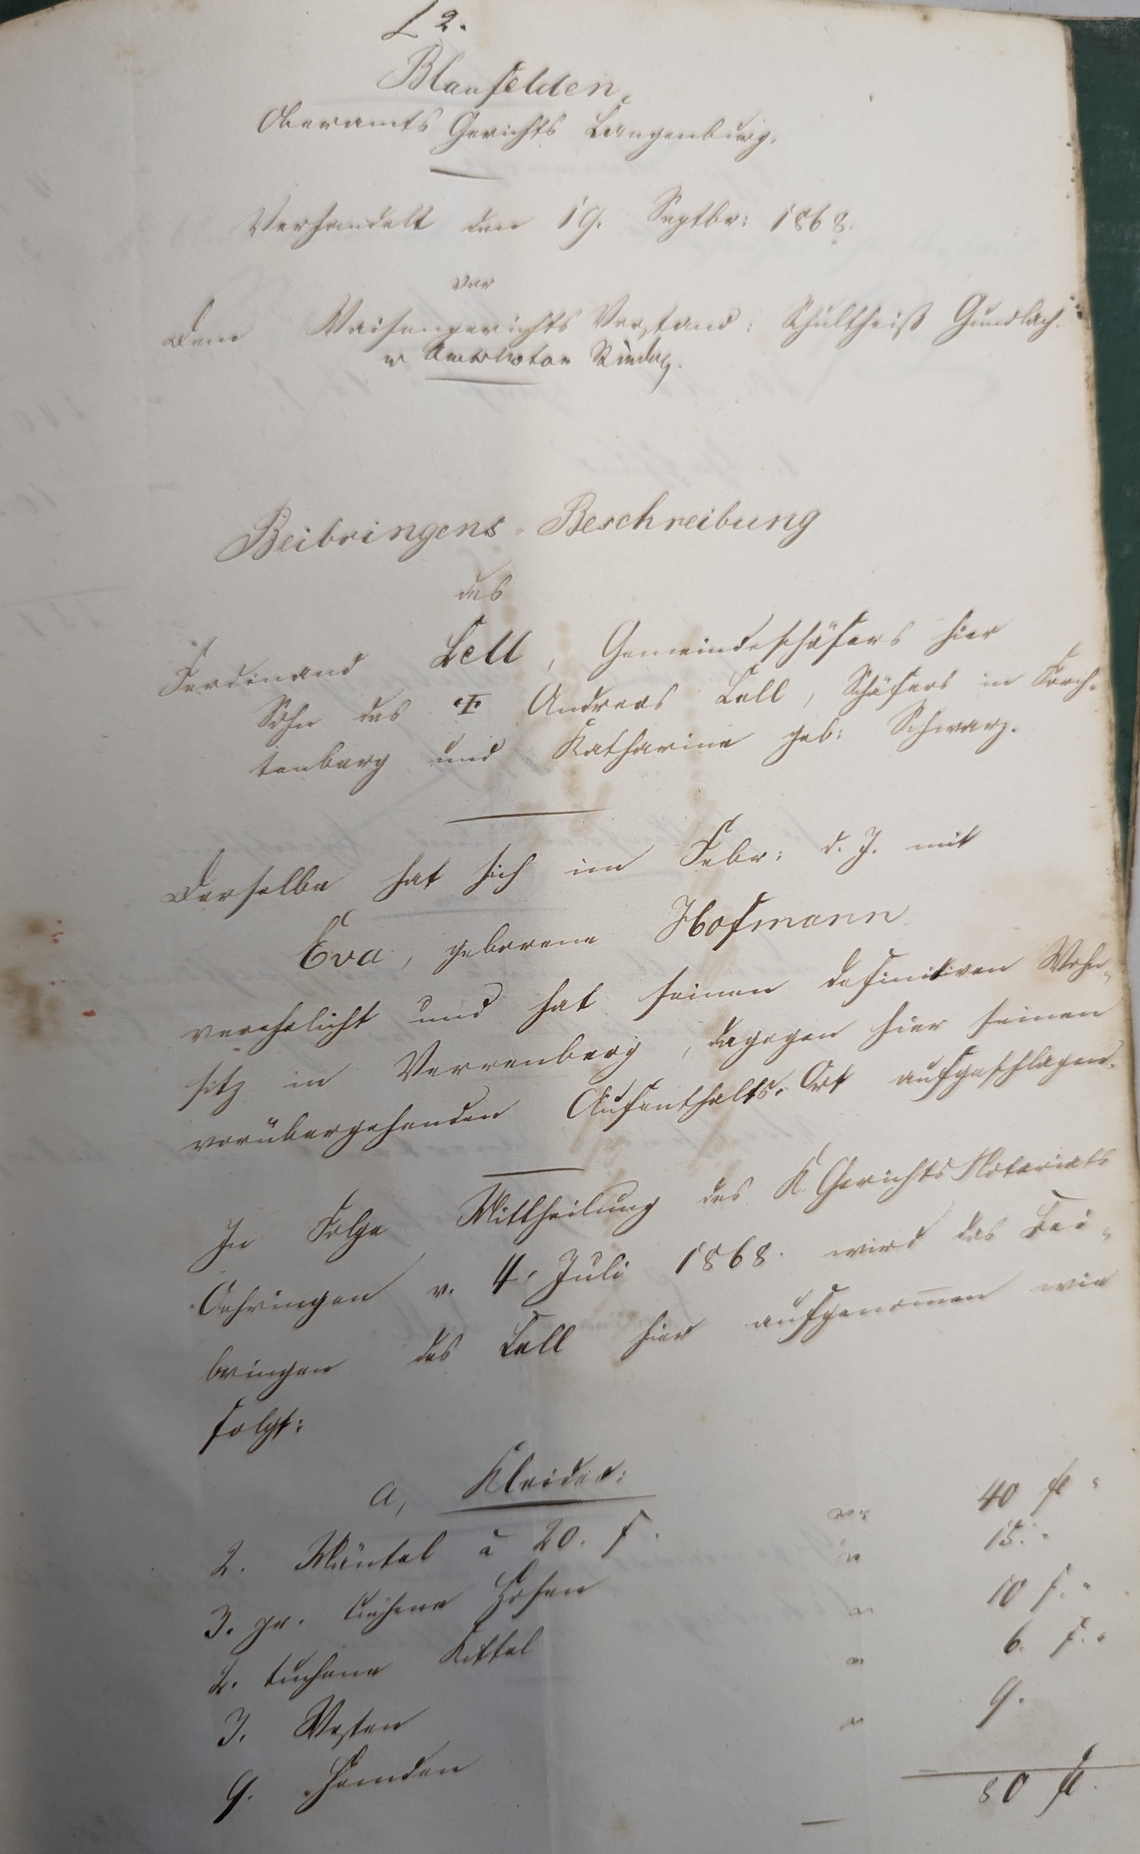 L 2.
Blaufelden,
Oberamts Gerichts Langenburg.
Verhandelt den 19. Septbr: 1868.
vor
Dem Waisengerichts Vorstand: Schultheiß Gundlach.
u Amtsnotar
Beibringens-Beschreibung
des
Ferdinand Lell, Gemeindeschäfers hier
Sohn des † Andreas Lell, Schäfers in Forch-
tenberg und Katharine geb: Schwarz.
Derselbe hat sich im Febr: d. J. mit
Eva, geborene Hofmann
verehelicht und hat seinen definitiven Wohn-
sitz in Verrenberg, dagegen hier seinen
vorübergehenden Aufenthalts-Ort aufgeschlagen.
In Folge Mittheilung des K. Gerichts Notariats
Oehringen v. 4. Juli 1868. wird das Bei-
bringen des Lell hier aufgenommen wie
folgt:
a, Kleider:
2. Mäntel à 20. f. 40 fl "
3. pr. tuchene Hosen " 15. "
2. tuchene Kittel " 10 f. "
3. Westen " 6. f. "
9. Hemden " 9.
80 fl.